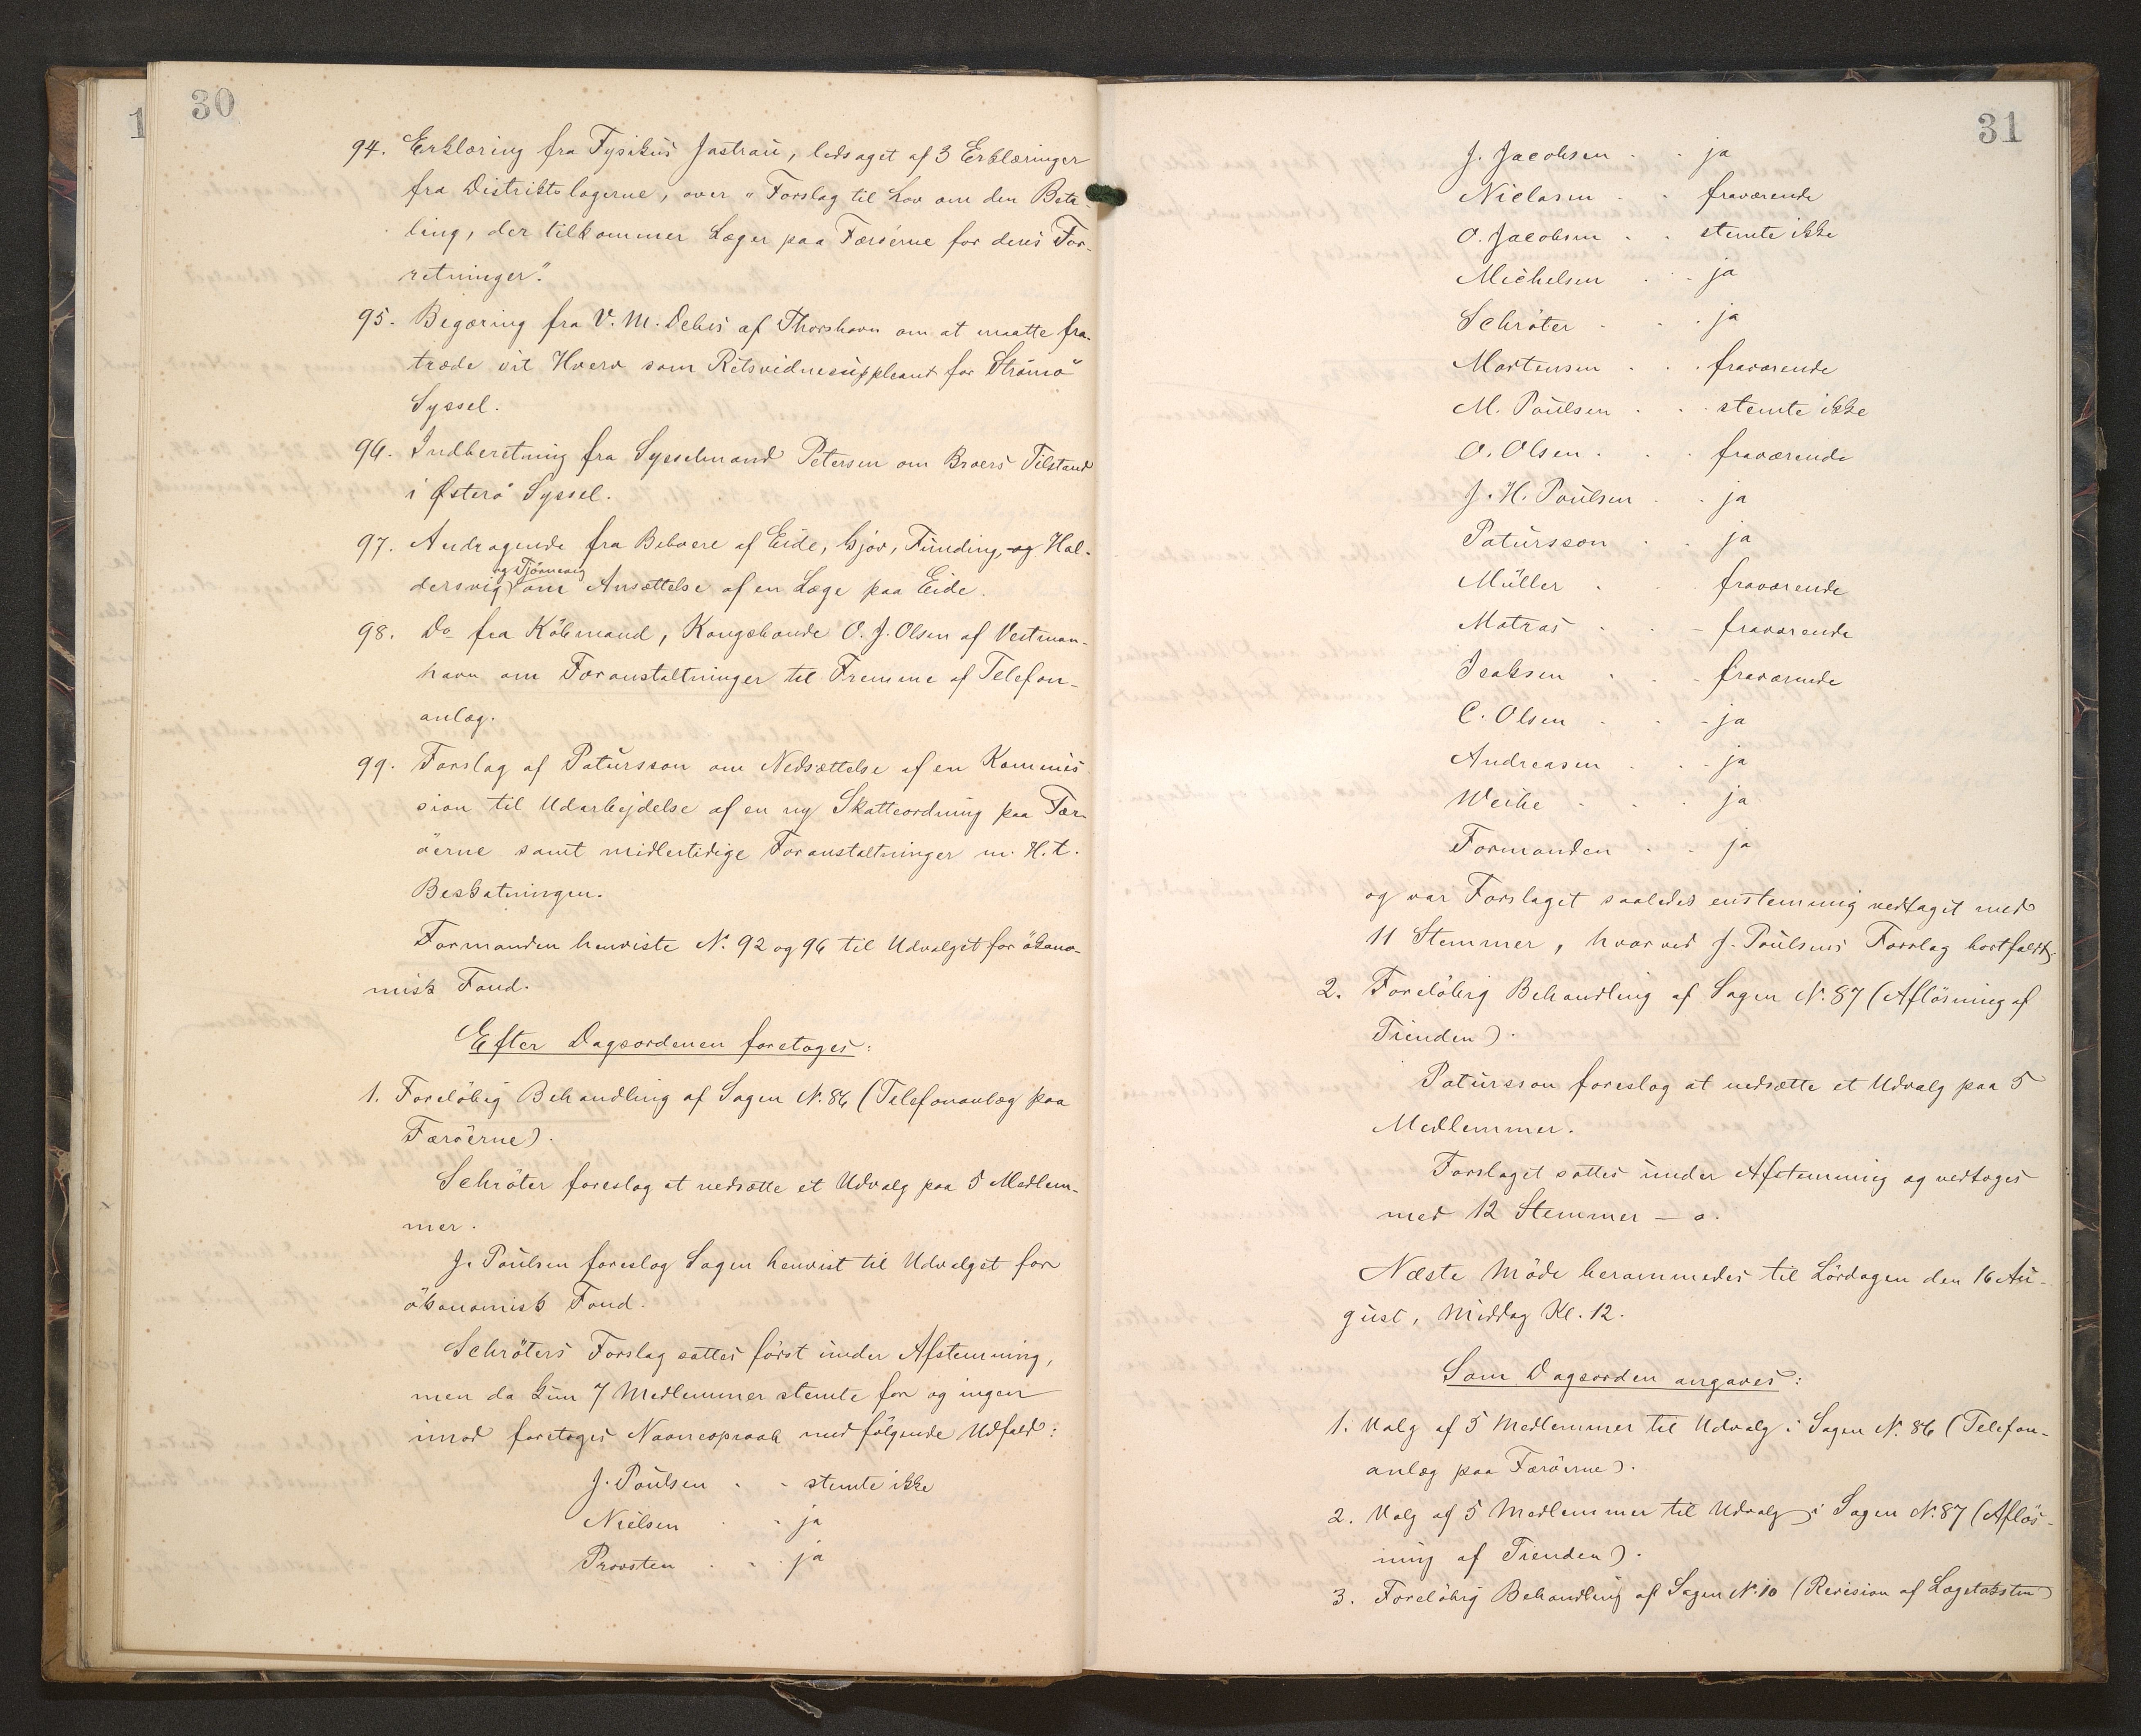 30
94. Erklæring fra Fysikus Jastrau, ledsaget af 3 Erklæringer
fra Distriktslægerne, over "Forslag til Lov om den Beta-
ling, der tilkommer Læger paa Færöerne for deres For-
retninger".
95. Begæring fra V. M. Debes af Thorshavn om at maatte fra-
træde sit Hverv som Retsvidnesuppleant for Strömö
Syssel.
96. Indberetning fra Sysselmand Petersen om Broers Tilstand
i Österö Syssel.
97. Andragende fra Beboere af Eide, Gjov, Funding, og Hal-
og Tjörnevig
dersvig om Ansættelse af en Læge paa Eide.
98. Do fra Köbmand, Kongsbonde O. J. Olsen af Vestman-
havn om Foranstaltninger til Fremme af Telefon-
anlæg.
99. Forslag af Patursson om Nedsættelse af en Kommis
sion til Udarbejdelse af en ny Skatteordning paa Fær-
öerne samt midlertidige Foranstaltninger m. H. t.
Beskatningen.
Formanden henviste No. 92 og 96 til Udvalget for ökono-
misk Fond.
Efter Dagsordenen foretoges:
1. Forelöbig Behandling af Sagen No. 86 (Telefonanlæg paa
Færöerne).
Schröter foreslog at nedsætte et Udvalg paa 5 Medlem-
mer.
J. Poulsen foreslog Sagen henvist til Udvalget for
ökonomisk Fond.
Schröters Forslag sattes först under Afstemning,
men da kun 7 Medlemmer stemte for og ingen
imod foretoges Navneopraab med fölgende Udfald:
J. Poulsen . - stemte ikke
Nielsen . - ja
Provsten . - . ja
31
J. Jacobsen . . ja
Niclasen . . fraværende
O. Jacobsen . . stemte ikke
Michelsen . . ja
Schröter . . . ja
Mortensen . . . fraværende
M. Poulsen . . . stemte ikke
O. Olsen . . . fraværende
J. H. Poulsen . . ja
Patursson . . ja
Müller . . fraværende
Matras . . - fraværende
Isaksen . . - fraværende
C. Olsen . . - ja
Andreasen . . - ja
Weihe . . . ja
Formanden . . ja
og var Forslaget saaledes enstemmig vedtaget med
11 Stemmer, hvorved J. Poulsens Forslag bortfaldt.
2. Forelöbig Behandling af Sagen No. 87 (Aflösning af
Tienden).
Patursson foreslog at nedsætte et Udvalg paa 5
Medlemmer.
Forslaget sattes under Afstemning og vedtoges
med 12 Stemmer – 0.
Næste Möde berammedes til Lördagen den 16 Au-
gust, Middag Kl. 12.
Som Dagsorden angaves:
1. Valg af 5 Medlemmer til Udvalg i Sagen No. 86 (Telefon-
anlæg paa Færöerne).
2. Valg af 5 Medlemmer til Udvalg i Sagen No. 87 (Aflös-
ning af Tienden).
3. Forelöbig Behandling af Sagen No. 10 (Revision af Lægetaksten)